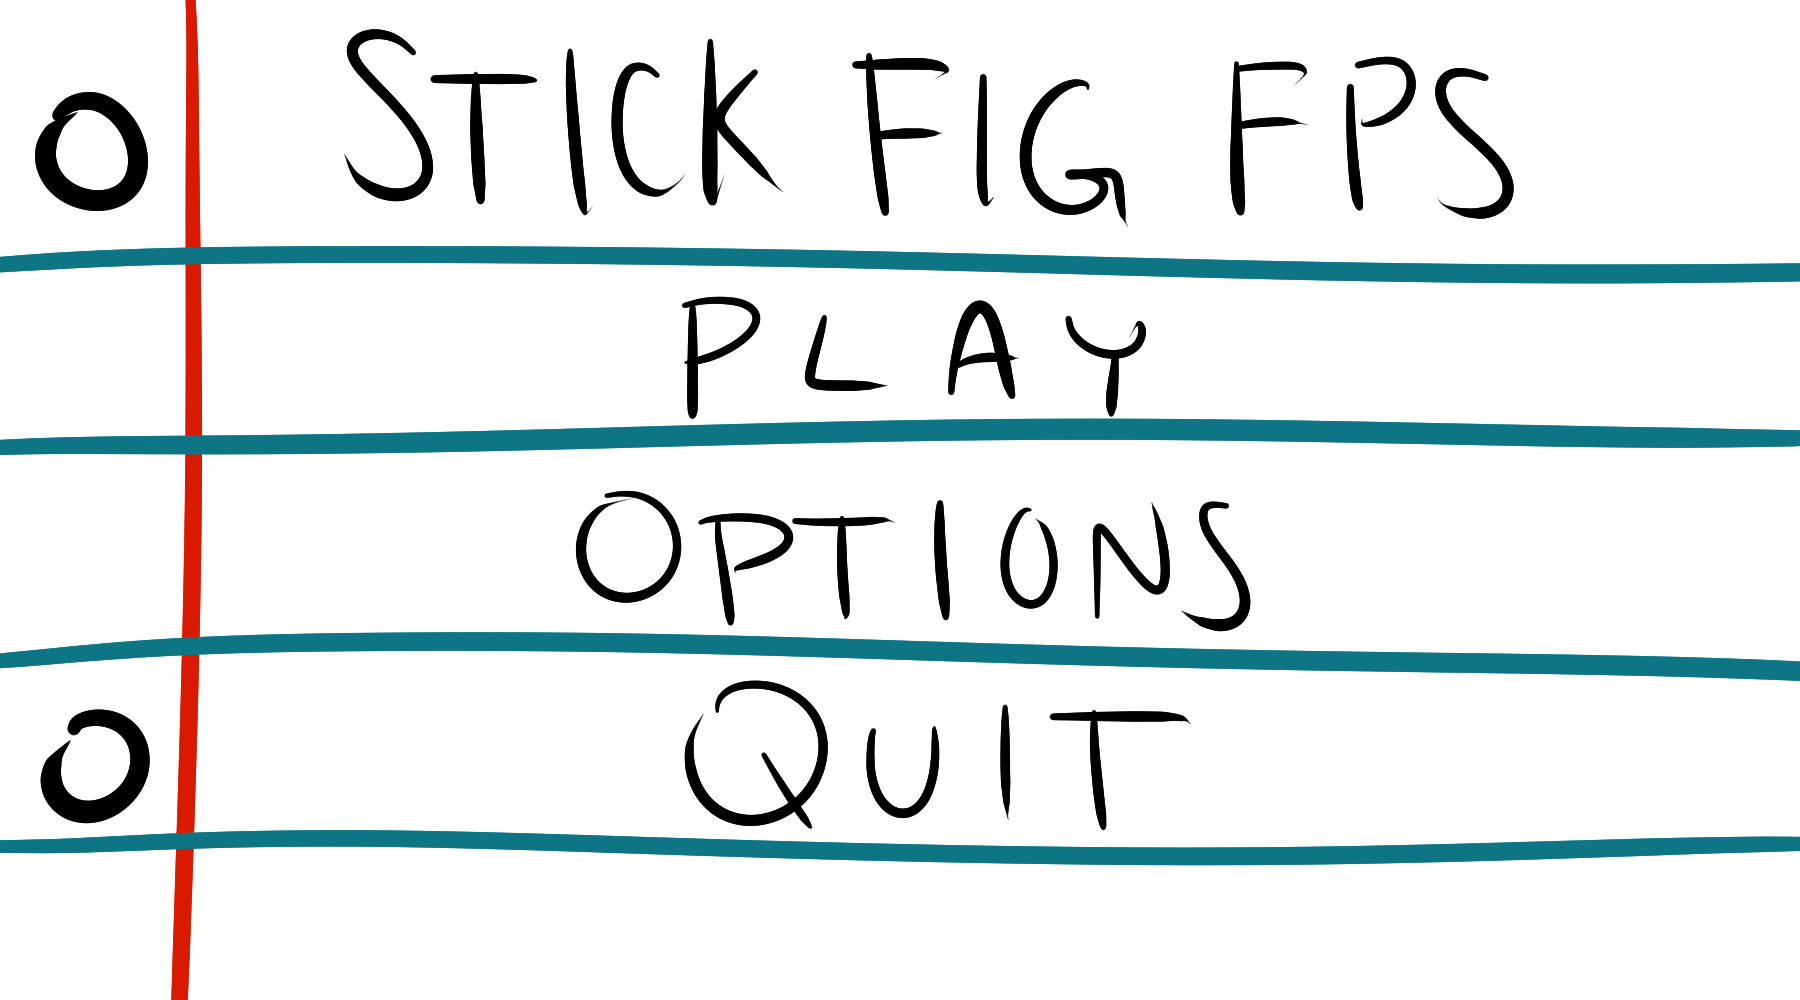 STICK FIG FPS
PLAY
OPTIONS
QUIT